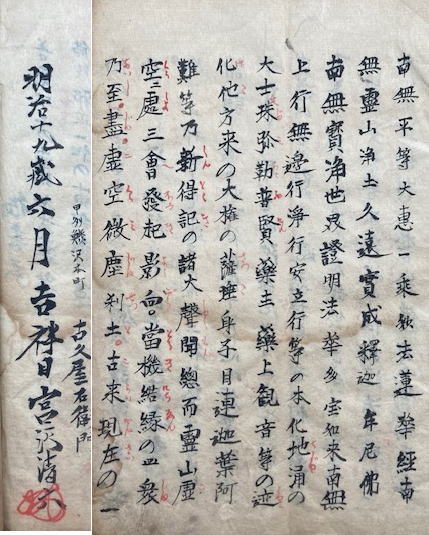 南無平等大惠一乘妙法蓮華経南
無靈山浄土久遠實成釋迦牟尼佛
南無寳浄世界證明法華多宝如来南無
上行無邊行浄行安立行等の本化地涌の
大士殊弥勒普賢藥主藥上観音等の迹
化他方来の大権の薩埵身子目連迦葉阿
難等乃新得記の諸大聲聞總而靈山虚
空二處三會發起影向當機結縁の四衆
乃至盡虚空微塵刹土古来現在の一
甲刕鰍沢本町 古久屋右
明治十九歳六月吉祥日宮沢清